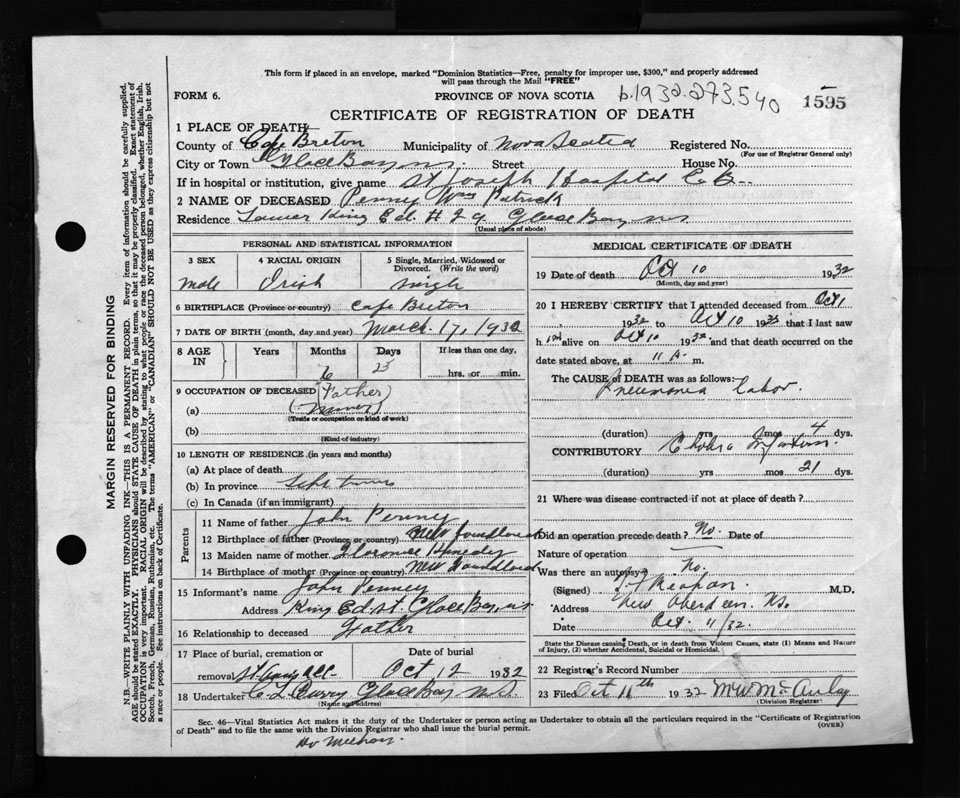 This form if placed in an envelope, marked "Dominion Statistics—Free, penalty for improper use, $300," and properly addressed
will pass through the Mail "FREE"
FORM 6. PROVINCE OF NOVA SCOTIA b.1932-273540 1595
CERTIFICATE OF REGISTRATION OF DEATH
1 PLACE OF DEATH—
County of Cape Breton Municipality of Nova Scotia Registered No.
(For use of Registrar General only)
City or Town Glace Bay NS. Street House No.
If in hospital or institution, give name St Joseph Hospital C.B.
2 NAME OF DECEASED Penney Wm Patrick
Residence King Ed. # 29 Glace Bay NS
(Usual place of abode)
PERSONAL AND STATISTICAL INFORMATION
3 SEX 4 RACIAL ORIGIN 5 Single, Married, Widowed or
Divorced. (Write the word)
male Irish single
6 BIRTHPLACE (Province or country) Cape Breton
7 DATE OF BIRTH (month, day and year) March 17, 1932
8 AGE IN Years Months Days If less than one day,
6 23 hrs. or min.
9 OCCUPATION OF DECEASED (Father)
(a)
(Trade or occupation or kind of work)
(b)
(Kind of industry)
10 LENGTH OF RESIDENCE (in years and months)
(a) At place of death
(b) In province Life time
(c) In Canada (if an immigrant)
Parents
11 Name of father John Penney
12 Birthplace of father (Province or country) New Foundland
13 Maiden name of mother Florence
14 Birthplace of mother (Province or country) New Foundland
15 Informant's name John Penney
Address King Ed St. Glace Bay, NS
16 Relationship to deceased Father
17 Place of burial, cremation or Date of burial
removal Oct 12 1932
18 Undertaker C L Curry Glace Bay N.S.
(Name and address)
MEDICAL CERTIFICATE OF DEATH
19 Date of death Oct 10 1932
(Month, day and year)
20 I HEREBY CERTIFY that I attended deceased from Oct 1
1932 to Oct 10 1932 that I last saw
h im alive on Oct 10 1932 and that death occurred on the
date stated above, at 11 A. m.
The CAUSE of DEATH was as follows:
Pneumonia Lobar.
(duration) yrs mos 4 dys.
CONTRIBUTORY Cholera Infantum.
(duration) yrs mos 21 dys.
21 Where was disease contracted if not at place of death?
Did an operation precede death? No. Date of
Nature of operation
Was there an autopsy? No.
(Signed) M.D.
Address New Aberdeen. NS.
Date Oct. 11/32.
State the Disease causing Death, or in death from Violent Causes, state (1) Means and Nature
of Injury, (2) whether Accidental, Suicidal or Homicidal.
22 Registrar's Record Number
23 Filed Oct 16th 1932 MW McAulay
(Division Registrar)
Sec. 46—Vital Statistics Act makes it the duty of the Undertaker or person acting as Undertaker to obtain all the particulars required in the "Certificate of Registration
of Death" and to file the same with the Division Registrar who shall issue the burial permit. (OVER)
MARGIN RESERVED FOR BINDING
N.B.—WRITE PLAINLY WITH UNFADING INK—THIS IS A PERMANENT RECORD. Every item of information should be carefully supplied.
AGE should be stated EXACTLY. PHYSICIANS should STATE CAUSE OF DEATH in plain terms, so that it may be properly classified. Exact statement of
OCCUPATION is very important. RACIAL ORIGIN will be described by stating to what people or race the deceased person belonged, whether English, Irish,
Scotch, French, German, Russian, Ruthenian, etc. The terms "AMERICAN" or "CANADIAN" SHOULD NOT BE USED as they express citizenship but not
a race or people. See instructions on back of Certificate.